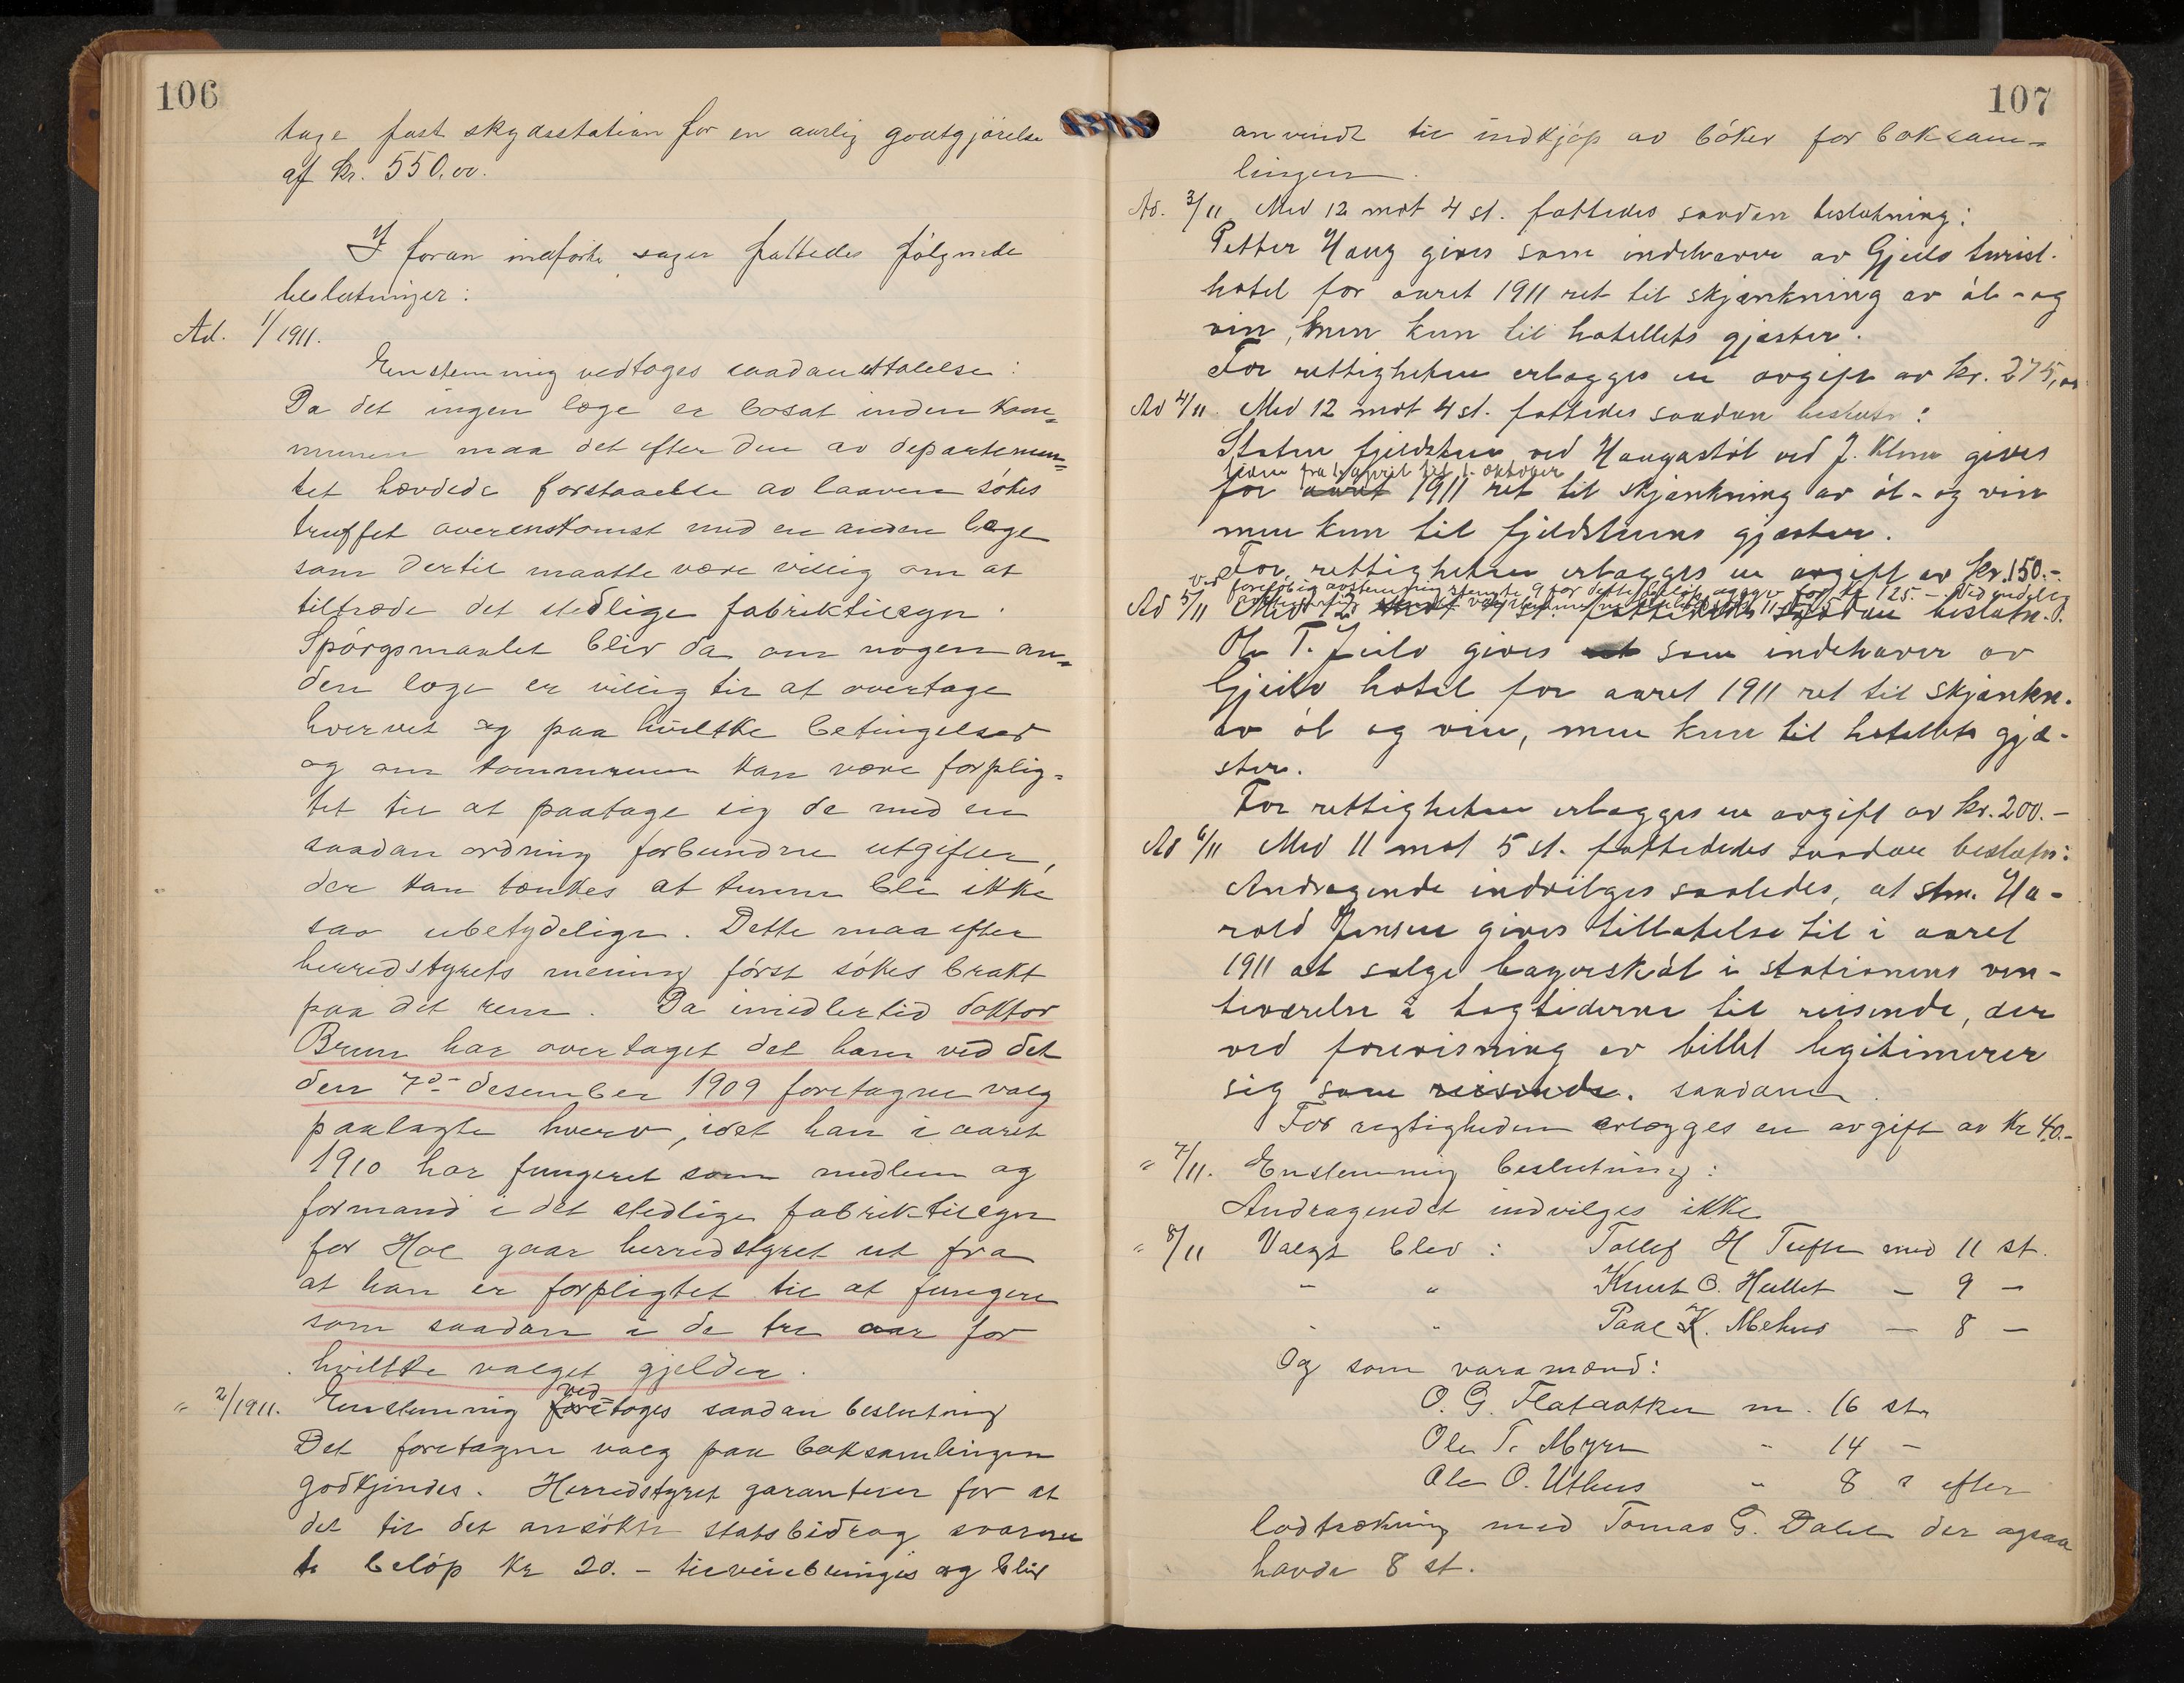 106
tage fast skydsstation for en aarlig godtgjörelse
af kr. 550.00.
I foran indförte sager fattedes fölgende
beslutninger:
Ad. 1/1911.
Enstemmig vedtoges saadan uttalelse:
Da det ingen læge er bosat inden kom=
munen maa det efter den av departemen=
tet hævdede forstaaelse av loven sökes
truffet overenskomst med en anden læge
som dertil maatte være villig om at
tiltræde det stedlige fabriktilsyn.
Spörgsmaalet blir da om nogen an=
den læge er villig til at overtage
hvervet og paa hvilke betingelser
og om kommunen kan være forplig=
tet til at paatage sig de med en
saadan ordning forbundne utgifter,
der kan tænkes at kunne bli ikke
saa ubetydelige. Dette maa efter
herredstyrets mening först sökes brakt
paa det rene. Da imidlertid doktor
Brun har overtaget det ham ved det
den 7de desember 1909 foretagne valg
paalagte hverv, idet han i aaret
1910 har fungeret som medlem og
formand i det stedlige fabriktilsyn
for Hol gaar herredstyret ut fra
at han er forpligtet til at fungere
som saadan i de tre aar for
hvilke valget gjelder.
" 2/1911. Enstemmig vedtoges saadan beslutning
Det foretagne valg paa boksamlingen
godkjendes. Herredstyret garanterer for at
det til det ansökte statsbidrag svaren
de belöp kr 20.- tilveiebringes og blir
107
anvendt til indkjöp av böker for boksam-
lingen.
Ad. 3/11 Med 12 mot 4 st. fattedes saadan beslutning:
Petter Haug gives som indehaver av Gjeilo turist-
hotel for aaret 1911 ret til skjænkning av öl- og
vin, men kun til hotellets gjæster.
For rettigheten erlægges en avgift av kr. 275,00
Ad 4/11. Med 12 mot 4 st. fattedes saadan beslutn:
Statens fjeldstue ved Haugastöl ved J. Klem gives
tiden fra 1. april til 1. oktober
for aaret 1911 ret til skjænkning av öl- og vin
men kun til fjeldstuens gjæster.
For rettigheten erlægges en avgift av kr. 150.-
Ad 5/11 Med 12 mot 4 st. fattedes saadan beslutn.:
Ole T. Jeilo gives som indehaver av
Gjeilo hotel for aaret 1911 ret til skjænkn.
av öl og vin, men kun til hotellets gjæ-
ster.
For rettigheten erlægges en avgift av kr. 200.-
Ad 6/11 Med 11 mot 5 st. fattededes saadan beslutn:
Andragende indvilges saaledes, at stm. Ha-
rald Jensen gives tillatelse til i aaret
1911 at sælge bayersköl i stationens ven-
teværelse i togtiderne til reisende, der
ved forevisning av billet legitimerer
sig som reisende. saadan
For regtigheden erlægges en avgift av kr 40.-
" 7/11. Enstemmig beslutning:
Andragendet indvilges ikke
" 8/11 Valgt blev: Tollef H Tufte med 11 st.
- " Knut O. Hullet - 9 -
- " Paal K. Mehus - 8 -
Og som varamænd:
O. G. Flataaker m. 16 st.
Ole T. Myren " 14 -
Ole O. Uthus " 8 " efter
lodtrækning med Tomas G. Dalen der ogsaa
havde 8 st.